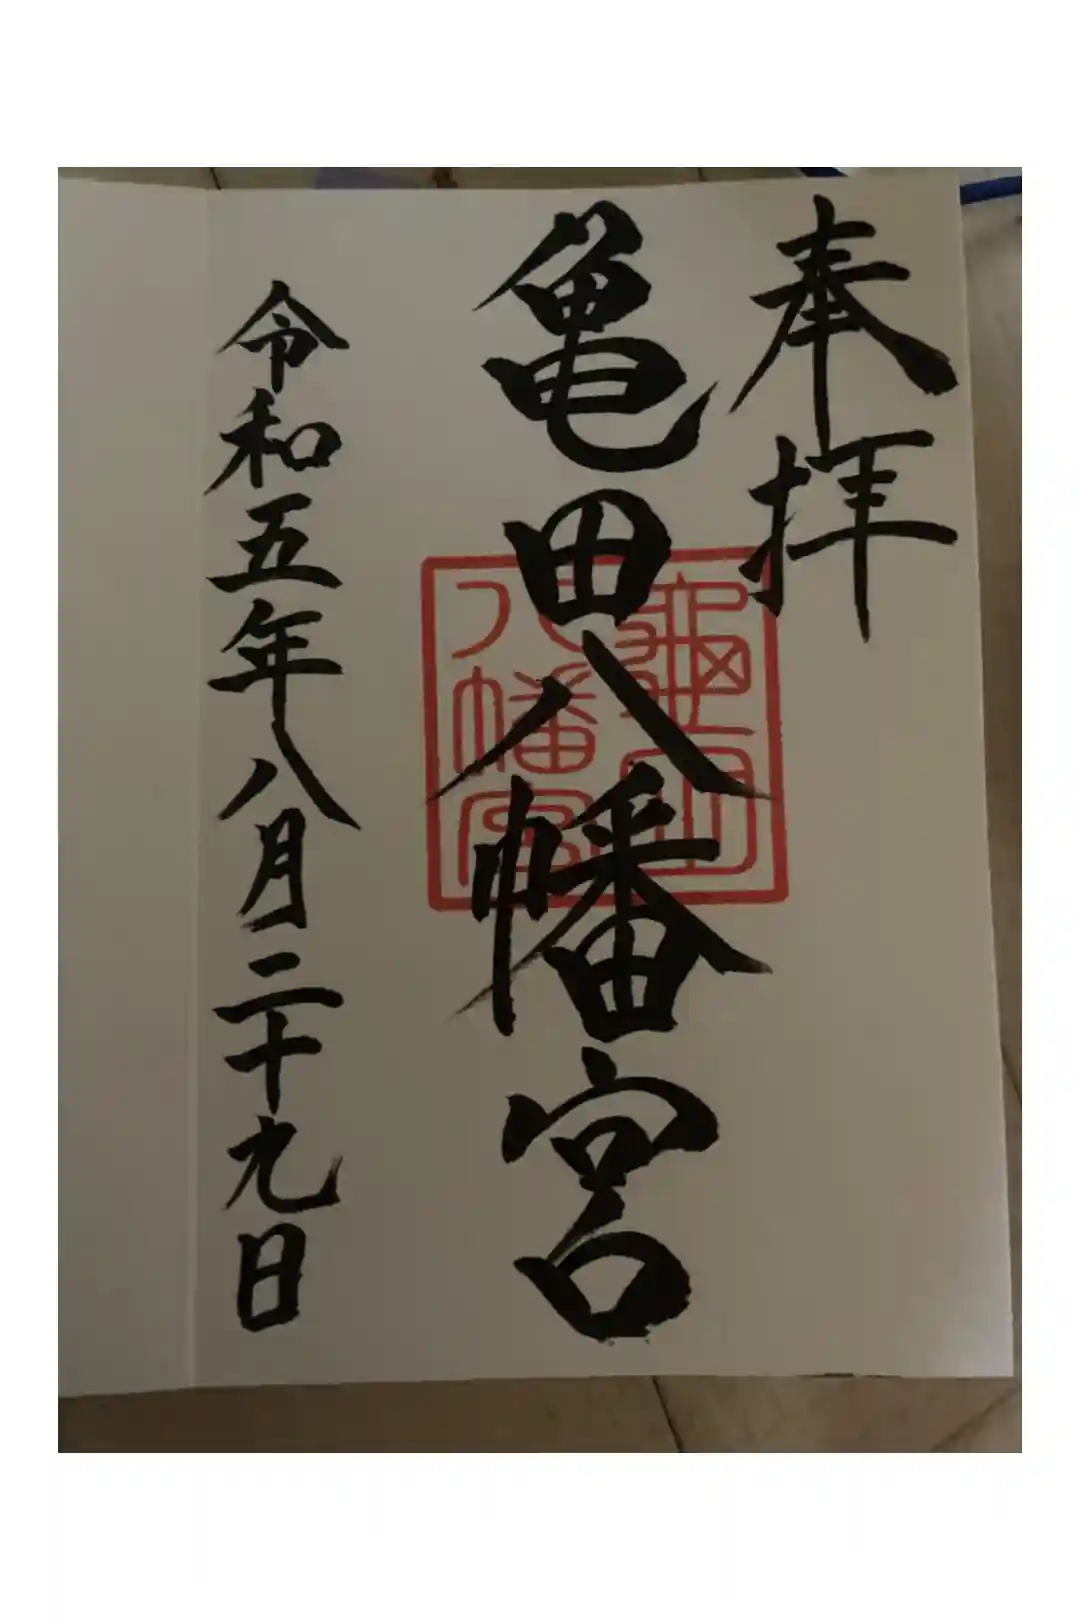 奉拝
亀田八幡宮
八幡宮
令和五年八月二十九日